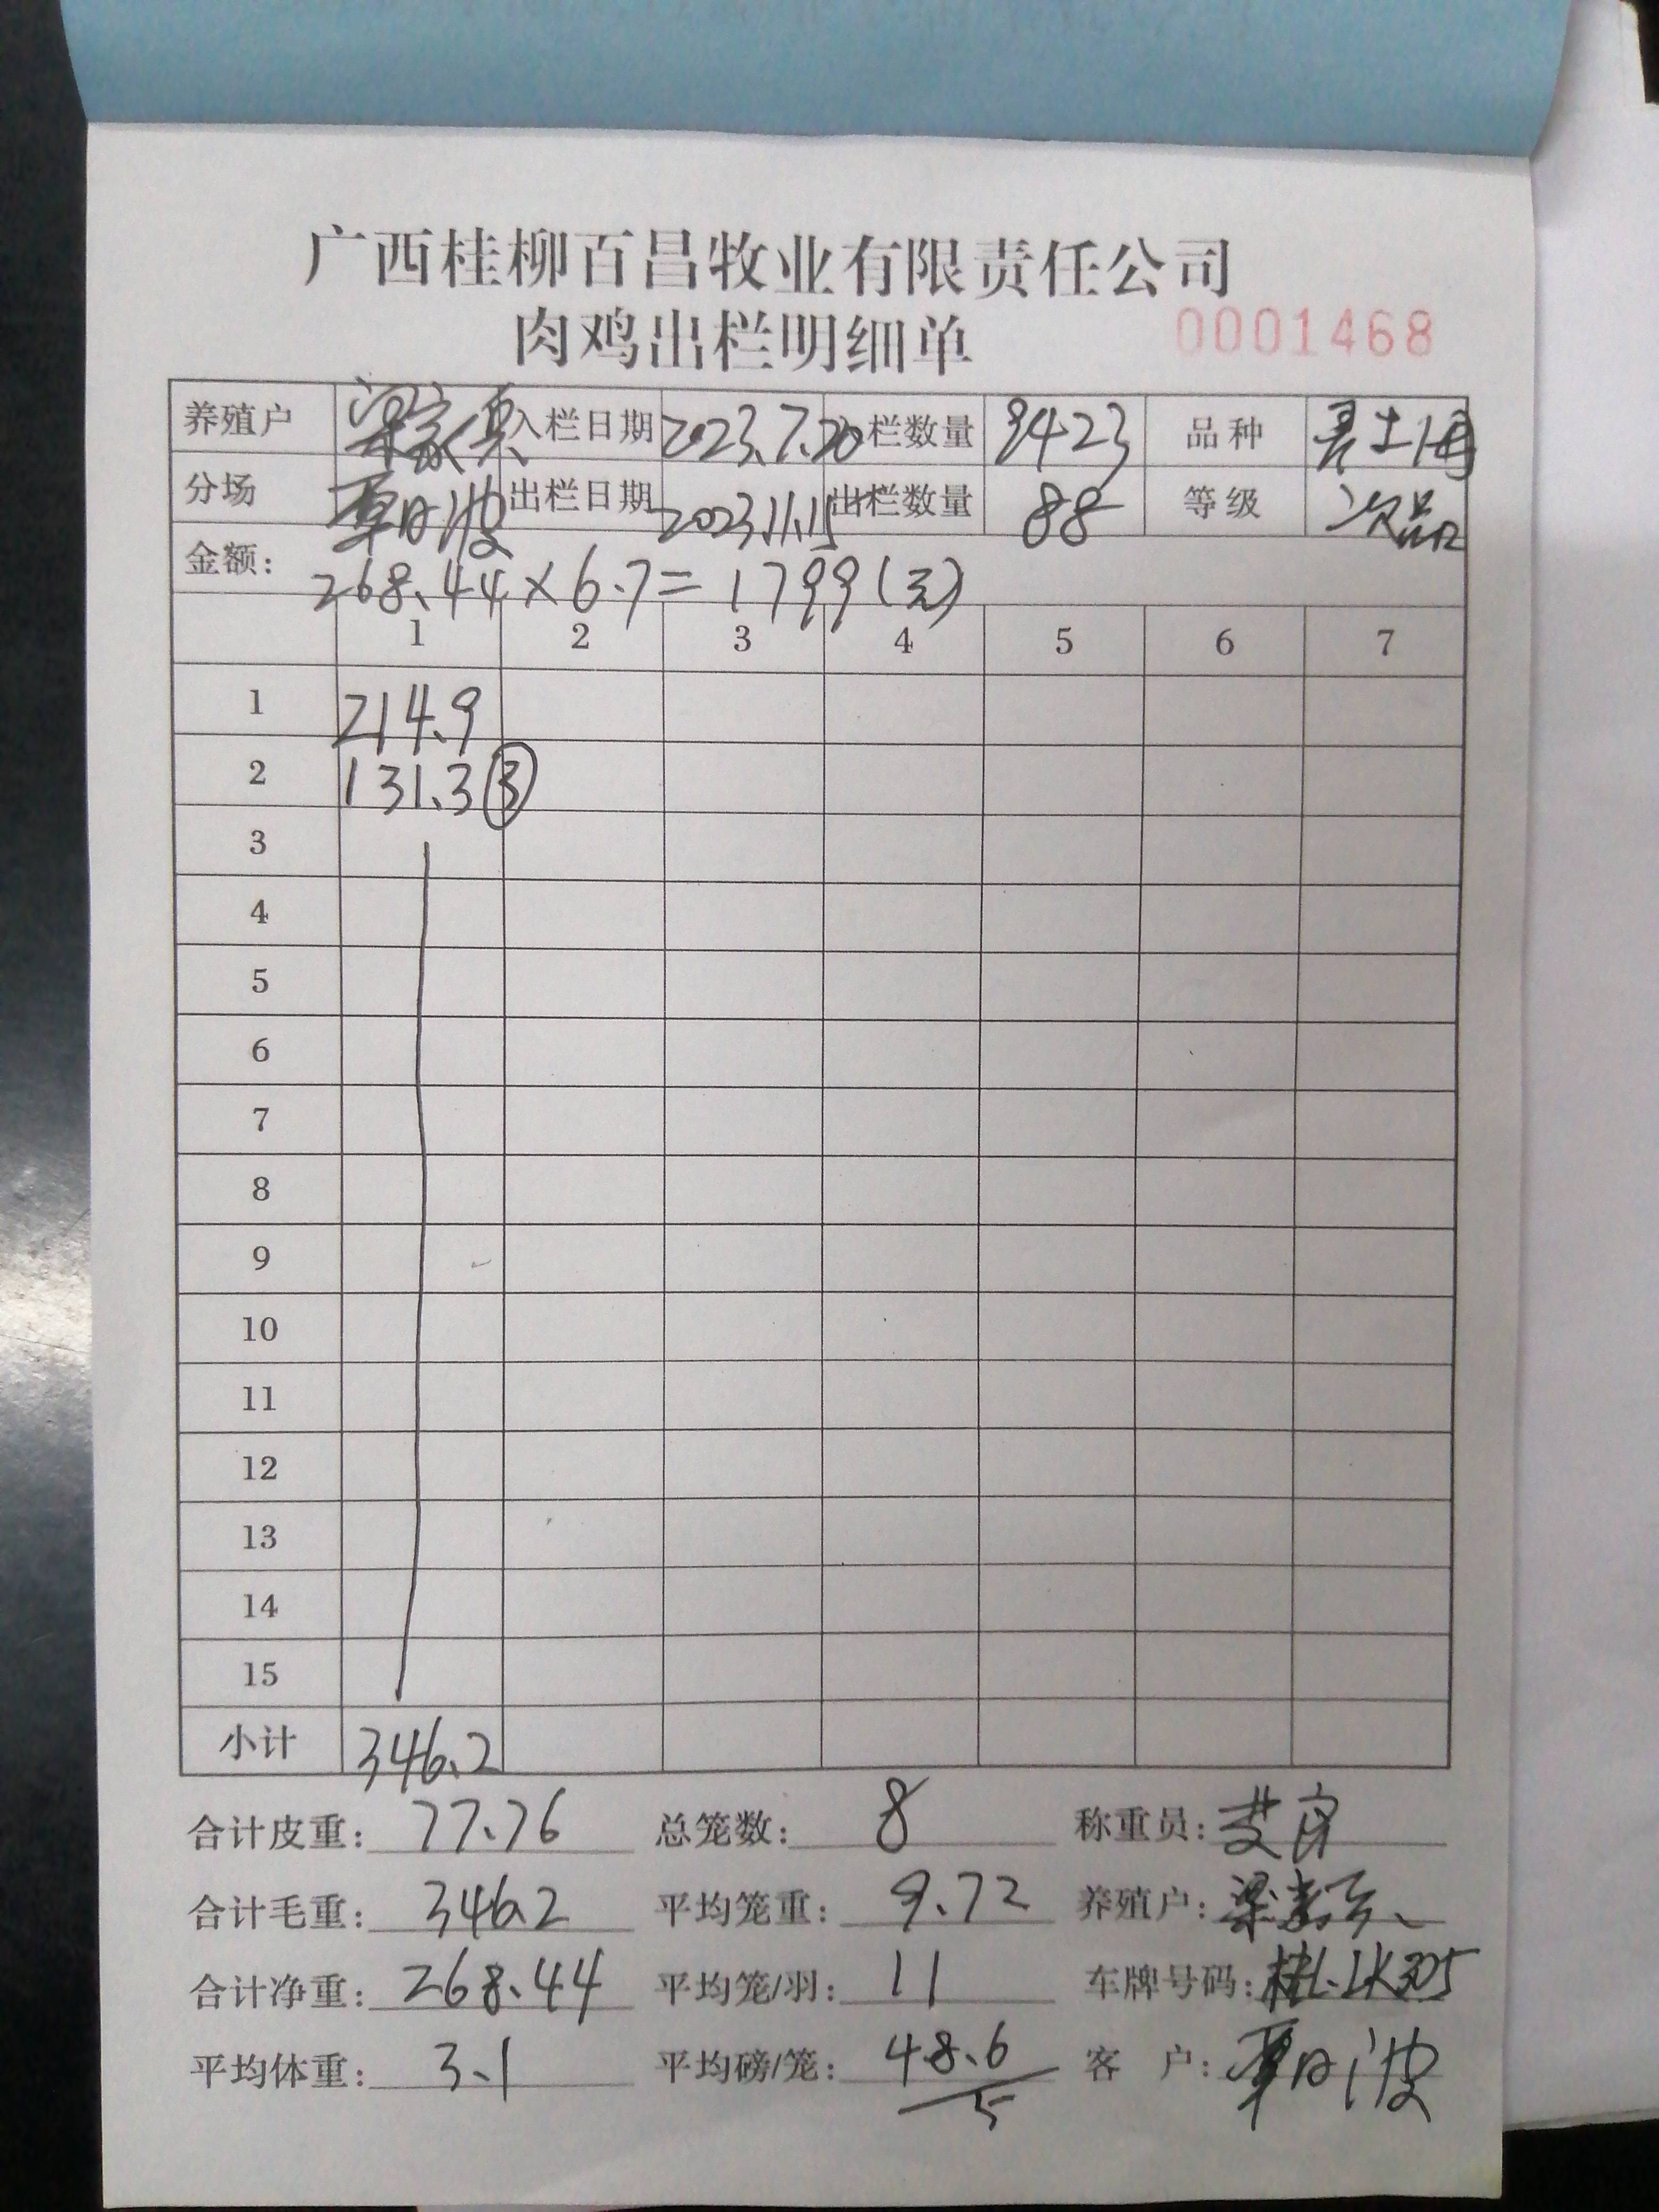 广西桂柳百昌牧业有限责任公司
肉鸡出栏明细单 0001468
养殖户 入栏日期 2023.7.20 入栏数量 8423 品种
分场 覃日波 出栏日期 2023.11.15 出栏数量 88 等级 次品
金额: 268.44×6.7=1799(元)
1 2 3 4 5 6 7
1 214.9
2 131.3 ③
3
4
5
6
7
8
9
10
11
12
13
14
15
小计 346.2
合计皮重: 77.76 总笼数: 8 称重员:
合计毛重: 346.2 平均笼重: 9.72 养殖户:
合计净重: 268.44 平均笼/羽: 11 车牌号码: 桂L.LK305
平均体重: 3.1 平均磅/笼: 48.6/5 客 户: 覃日波